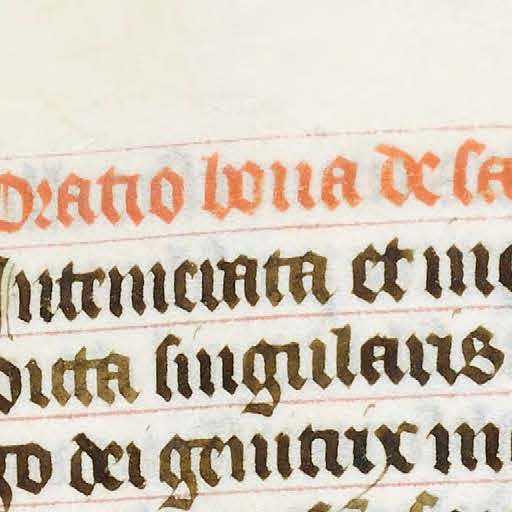 Oratio bona de sa
Intemerata et in e
dicta singularis
go dei genitrix m